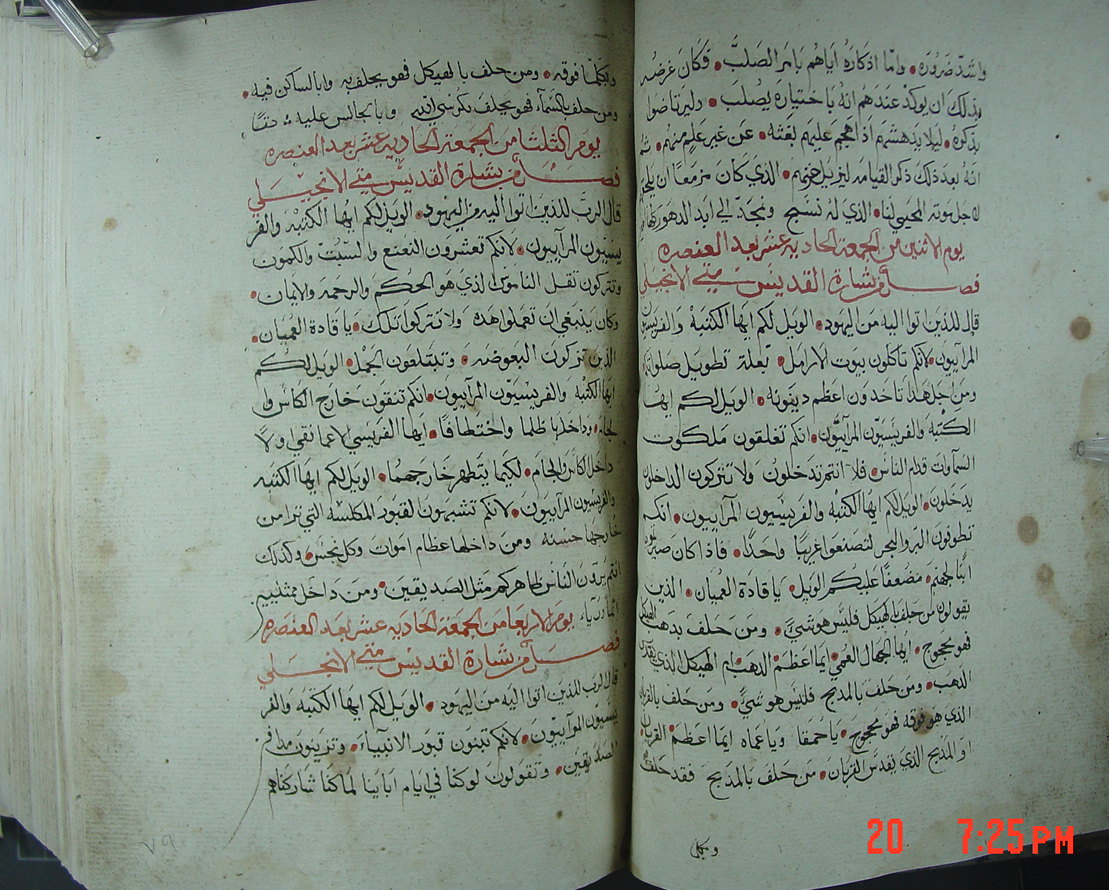 واشد ضروره • واما اذكاره اياهم بامر الصلب • فكان غرضه
بذلك ان يوكد عندهم انه باختياره يصلب •
بذكره • ليلا يدهشهم اذا هجم عليهم بغته • عن غير علم منهم •
انه بعد ذلك ذكر القيامه ليزيل حزنهم • الذي كان مزمعا ان
لاجل موته المحيي لنا • الذي له نسبح ونمجد الي ابد الدهور
يوم الاثنين من الجمعة الحادية عشر بعد العنصره
فصل من بشارة القديس متي الانجيلي
قال للذين اتوا اليه من اليهود • الويل لكم ايها الكتبه والفريسيون
المرآييون • لانكم تاكلون بيوت الارامل • بعلة تطويل صلواتكم
ومن اجل هذا تاخدون اعظم دينونه • الويل لكم ايها
الكتبه والفريسيون المرآييون • انكم تغلقون ملكوت
السماوات قدام الناس • فلا انتم تدخلون ولا تتركون الداخلين
يدخلون • الويل لكم ايها الكتبه والفريسيون المرآييون • انكم
تطوفون البر والبحر لتصنعوا غريبا واحدا • فاذا كان
ابنا لجهنم • مضعفا عليكم الويل • يا قادة العميان • الذين
يقولون من حلف بالهيكل فليس هو شي • ومن حلف بذهب الهيكل
فهو محجوج • ايها الجهال العمي • ايما اعظم الذهب ام الهيكل الذي يقدس
الذهب • ومن حلف بالمذبح فليس هو شي • ومن حلف بالقربان
الذي هو فوقه فهو محجوج • يا حمقا ويا عماه ايما اعظم القربان
او المذبح الذي يقدس القربان • من حلف بالمذبح فقد حلف
وبكل
وبكلما فوقه • ومن حلف بالهيكل فهو يحلف به وبالساكن فيه •
ومن حلف بالسماء فهو يحلف بكرسي الله وبالجالس عليه
يوم الثلثا من الجمعة الحادية عشر بعد العنصره
فصل من بشارة القديس متي الانجيلي
قال الرب للذين اتوا اليه من اليهود • الويل لكم ايها الكتبه والفر
يسيون المرآييون • لانكم تعشرون النعنع والشبت والكمون
وتتركون ثقل الناموس الذي هو الحكم والرحمه والايمان •
وكان ينبغي ان تعملوا هذه ولا تتركوا تلك • يا قادة العميان •
الذين تركون البعوضه • وتبتلعون الجمل • الويل لكم
ايها الكتبه والفريسيون المرآييون • انكم تنقون خارج الكاس وا
لجام • وداخلها ظلما واختطافا • ايها الفريسي الاعما نقي اولا
داخل الكاس والجام • لكيما يتطهر خارجهما • الويل لكم ايها الكتبه
والفريسيون المرآييون • لانكم تشبهون لقبور المكلسه التي ترا من
خارجها حسنه ومن داخلها عظام اموات وكل نجس • وكذلك
انتم يرون الناس ظاهركم مثل الصديقين • ومن داخل ممتليين
اثما ورياء
يوم الاربعا من الجمعة الحاديه عشر بعد العنصره
فصل من بشارة القديس متي الانجيلي
قال الرب للذين اتوا اليه من اليهود • الويل لكم ايها الكتبه والفر
يسيون المرآييون • لانكم تبنون قبور الانبياء • وتزينون مدافن
الصديقين • وتقولون لو كنا في ايام ابايينا لما كنا شاركناهم
٧٩
20 7:25 PM